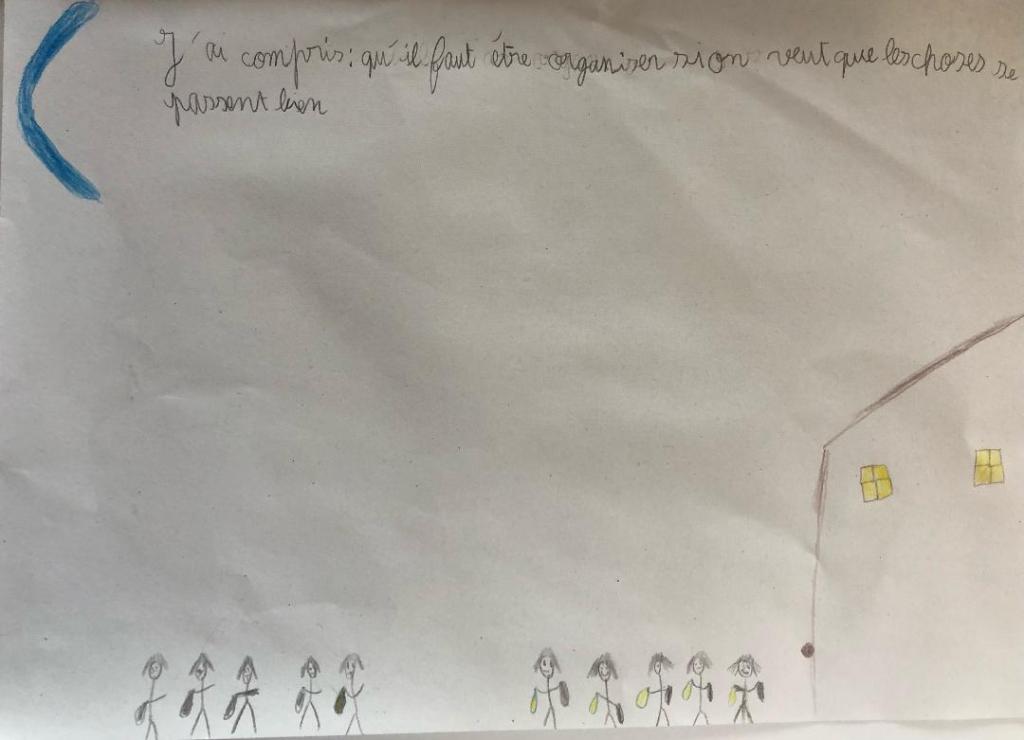 J'ai compris : qu'il faut être organiser si on veut que les choses se
passent bien